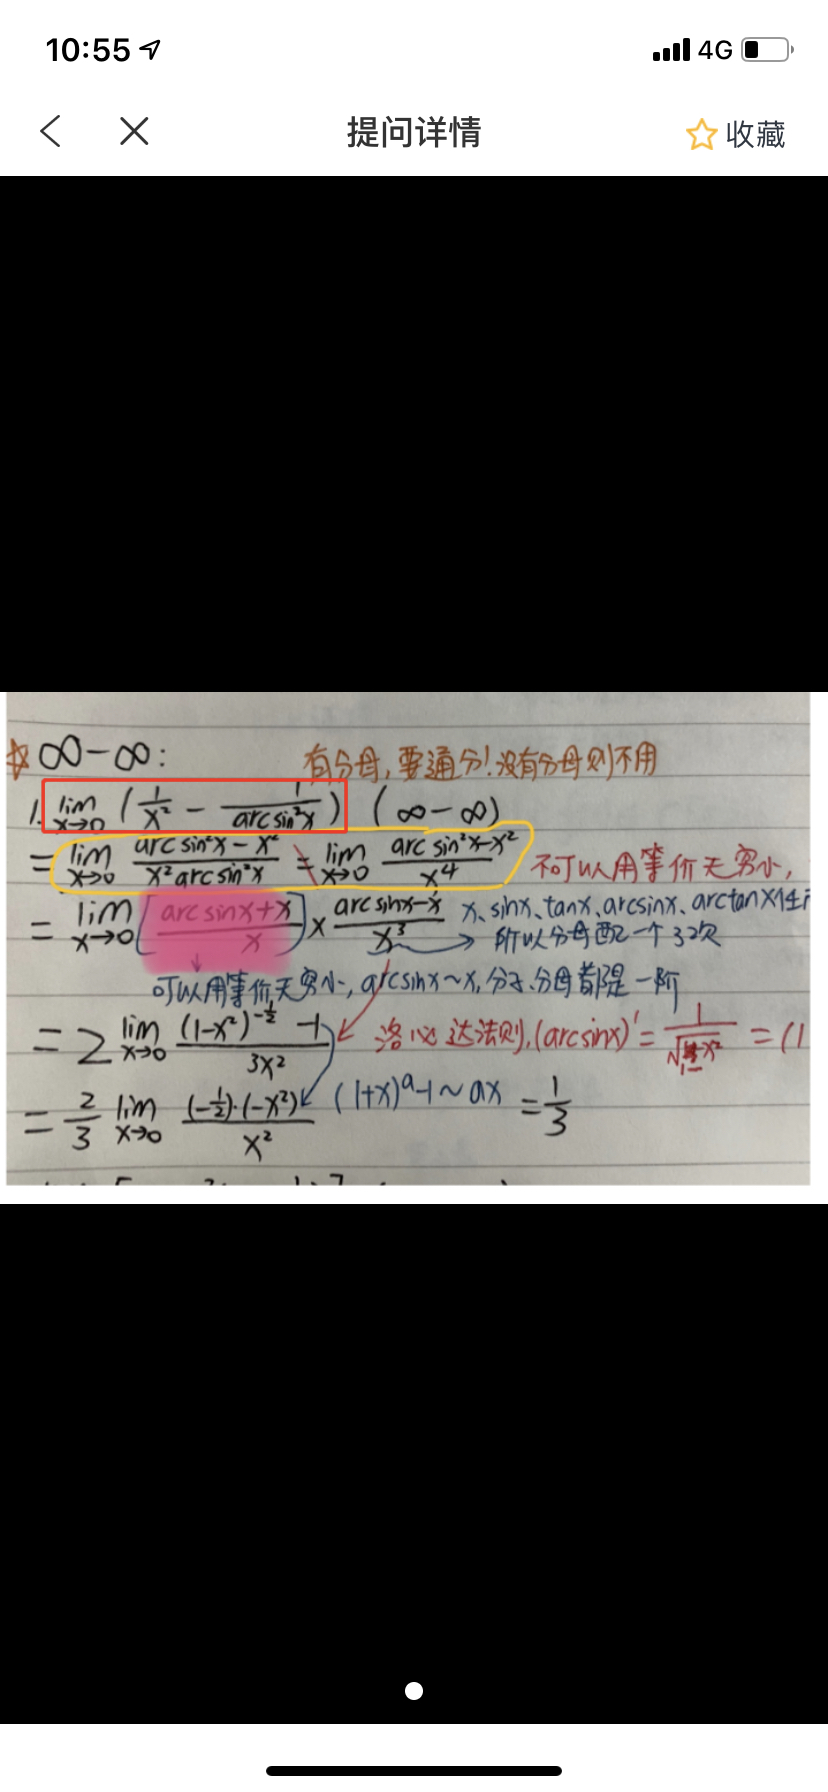 10:55 4G
提问详情 收藏
∞-∞: 有分母,要通分!没有分母则不用
1. lim x→0 (1/x² - 1/arcsin²x) (∞-∞)
= lim x→0 (arcsin²x - x²)/(x² arcsin²x) = lim x→0 (arcsin²x-x²)/x⁴ 不可以用等价无穷小,
= lim x→0 [(arcsinx+x)/x] × (arcsinx-x)/x³ x、sinx、tanx、arcsinx、arctanx
所以分母配一个3次
可以用等价无穷小, arcsinx~x, 分子、分母都是一阶
= 2 lim x→0 ((1-x²)^(-1/2) -1)/3x² 洛必达法则,(arcsinx)' = 1/√(1-x²) = (1
= 2/3 lim x→0 ((-1/2)·(-x²))/x² (1+x)^a-1~ax = 1/3